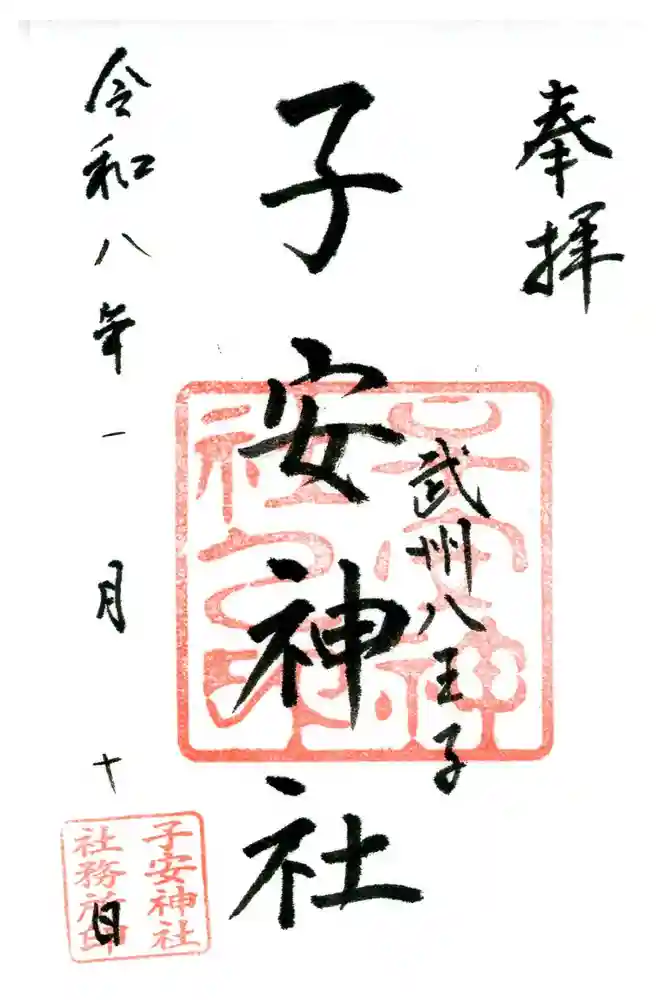 奉拝
武州八王子
子安神社
令和八年一月十日
子安神
社之印
子安神社
社務所印